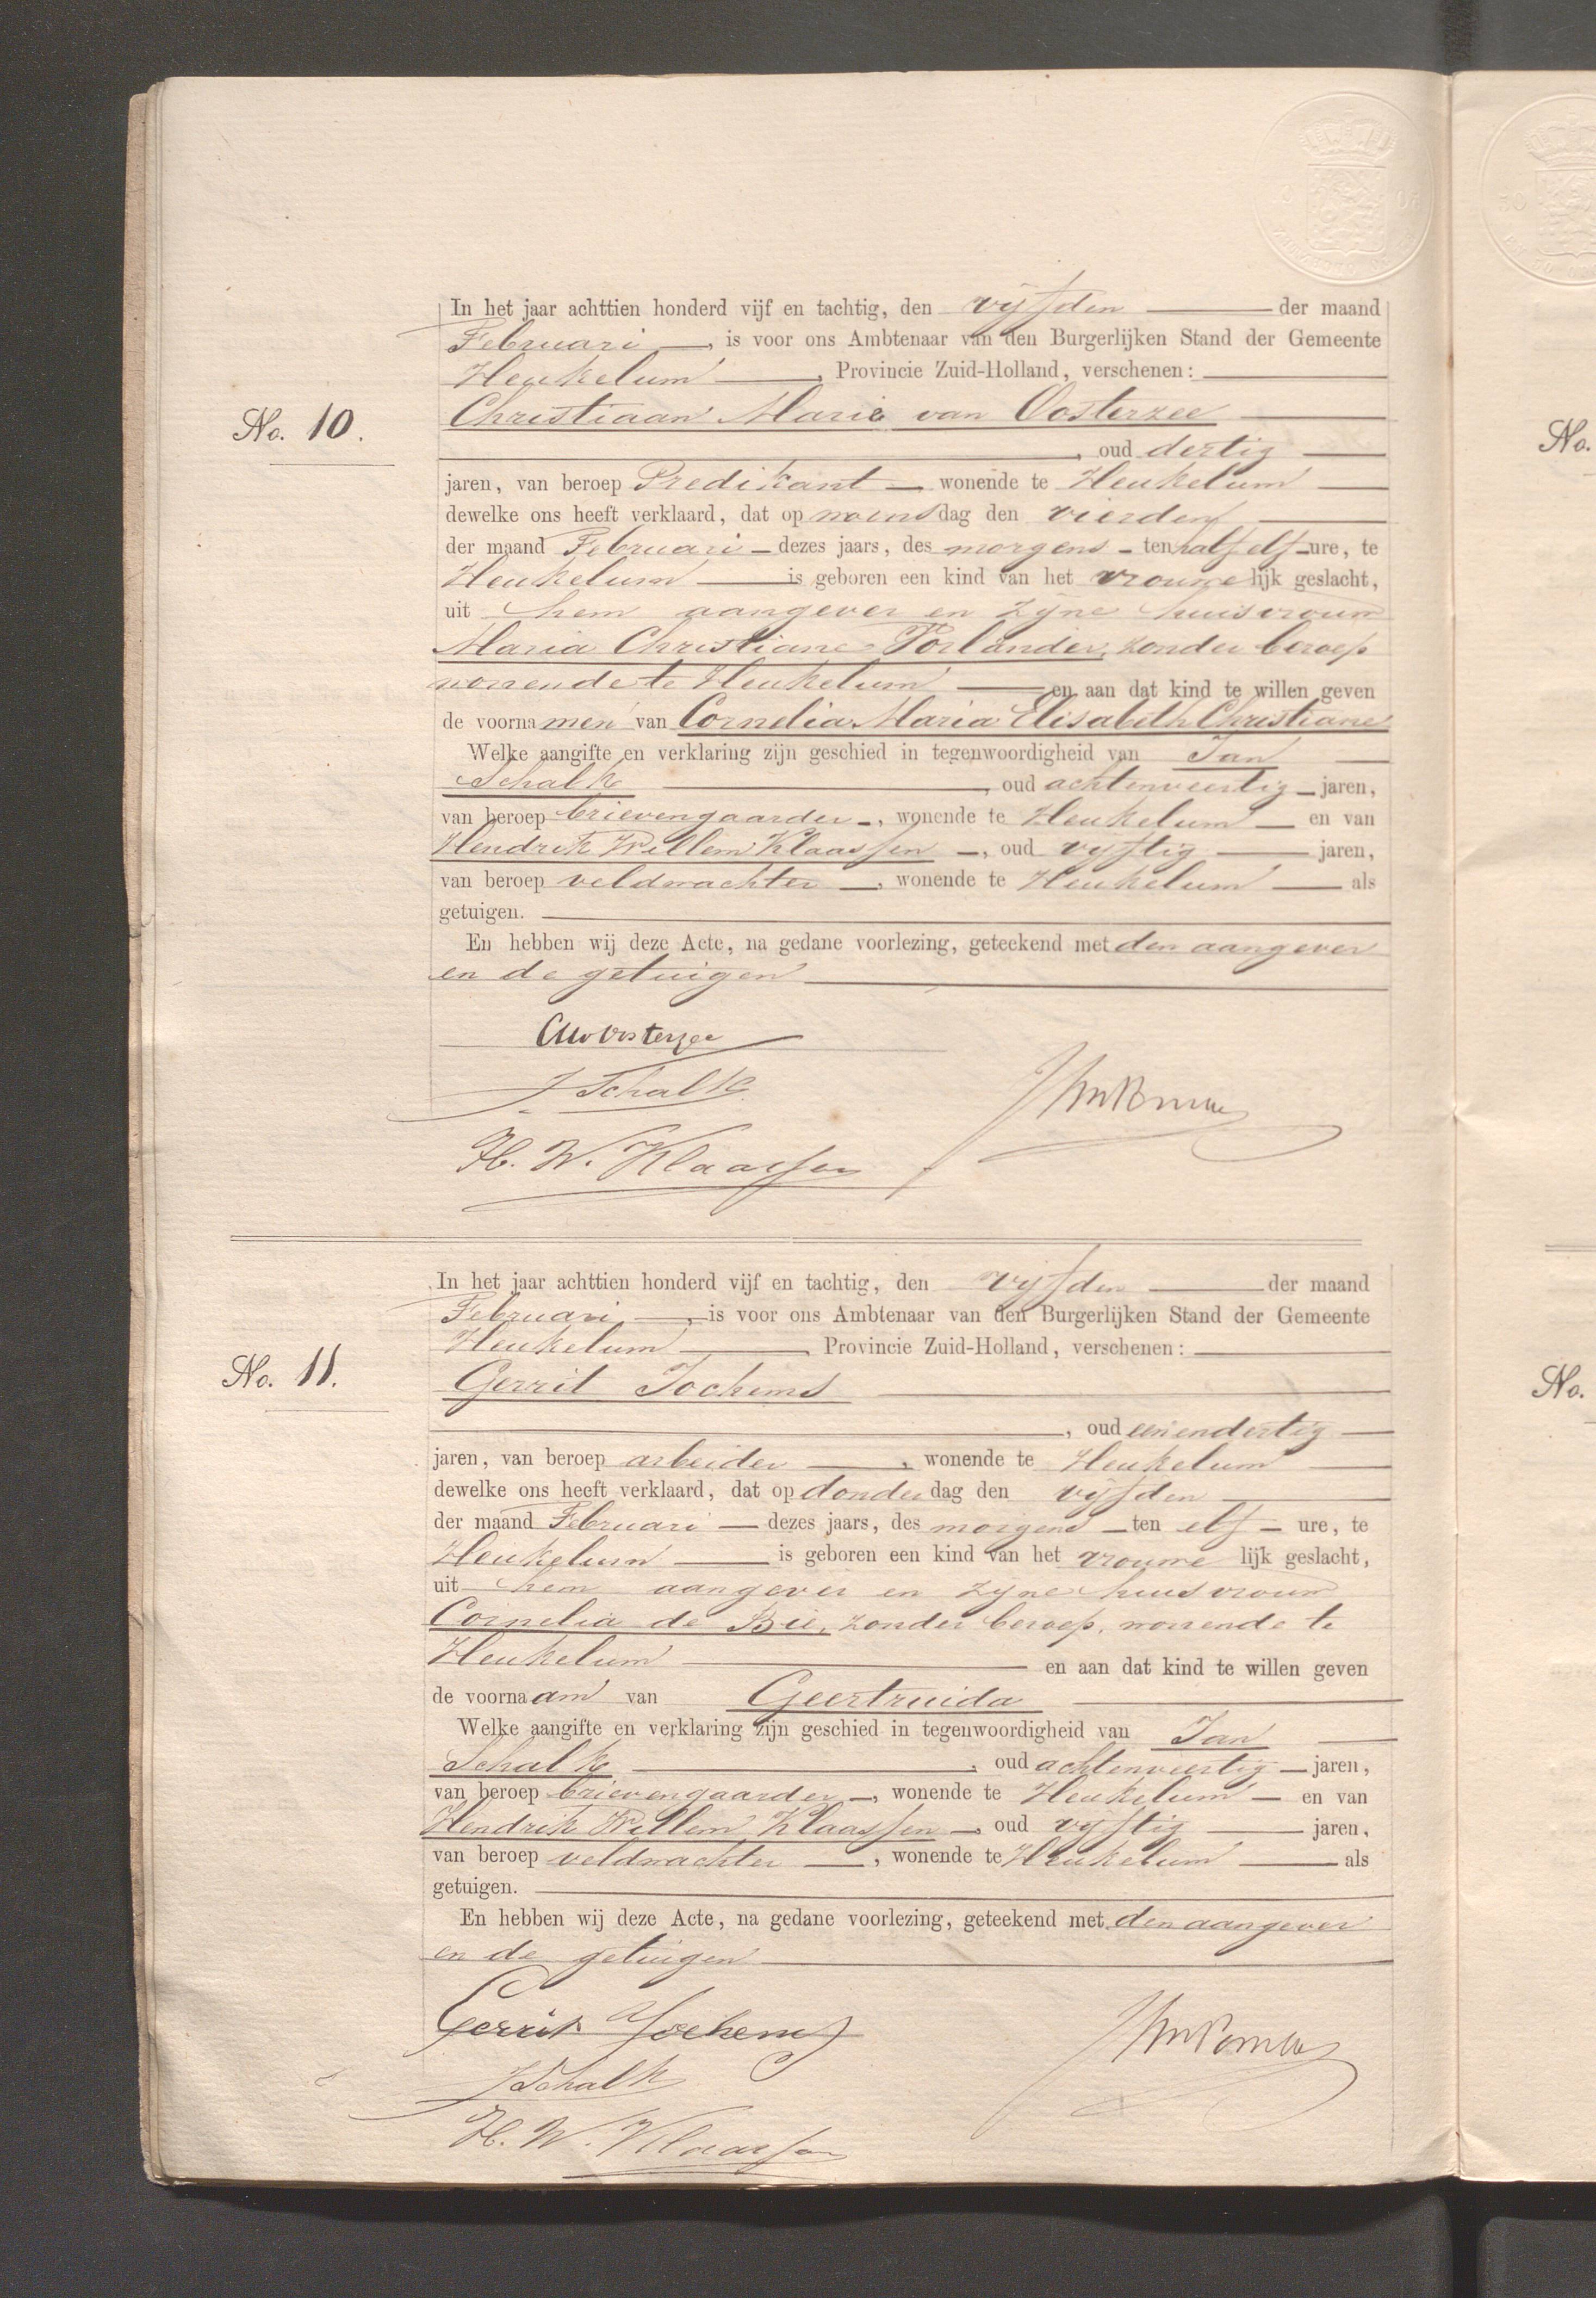 In het jaar achttien honderd vijf en tachtig, den vijfden der maand
Februari, is voor ons Ambtenaar van den Burgerlijken Stand der Gemeente
Heukelum, Provincie Zuid-Holland, verschenen:
No. 10.
Christiaan Marie van Oosterzee
, oud dertig
jaren, van beroep Predikant wonende te Heukelum
dewelke ons heeft verklaard, dat op woensdag den vierden
der maand Februari dezes jaars, des morgens ten half elf ure, te
Heukelum is geboren een kind van het vrouwelijk geslacht,
uit hem aangever en zijne huisvrouw
Maria Christiane Porlander, zonder beroep
wonende te Heukelum en aan dat kind te willen geven
de voornamen van Cornelia Maria Elisabeth Christiane
Welke aangifte en verklaring zijn geschied in tegenwoordigheid van Jan
Schalk, oud achtenveertig jaren,
van beroep brievengaarder, wonende te Heukelum en van
Hendrik Willem Klaassen, oud vijftig jaren,
van beroep veldwachter, wonende te Heukelum als
getuigen.
En hebben wij deze Acte, na gedane voorlezing, geteekend met den aangever
en de getuigen
CMvOosterzee
J Schalk
H. W. Klaassen
In het jaar achttien honderd vijf en tachtig, den vijfden der maand
Februari, is voor ons Ambtenaar van den Burgerlijken Stand der Gemeente
Heukelum, Provincie Zuid-Holland, verschenen:
No. 11.
Gerrit Jochems
, oud eenendertig
jaren, van beroep arbeider, wonende te Heukelum
dewelke ons heeft verklaard, dat op donderdag den vijfden
der maand Februari dezes jaars, des morgens ten elf ure, te
Heukelum is geboren een kind van het vrouwelijk geslacht,
uit hem aangever en zijne huisvrouw
Cornelia de Bie, zonder beroep, wonende te
Heukelum en aan dat kind te willen geven
de voornaam van Geertruida
Welke aangifte en verklaring zijn geschied in tegenwoordigheid van Jan
Schalk, oud achtenveertig jaren,
van beroep brievengaarder, wonende te Heukelum en van
Hendrik Willem Klaassen, oud vijftig jaren,
van beroep veldwachter, wonende te Heukelum als
getuigen.
En hebben wij deze Acte, na gedane voorlezing, geteekend met den aangever
en de getuigen
Gerrit Jochems
J Schalk
H. W. Klaassen
No.
No.